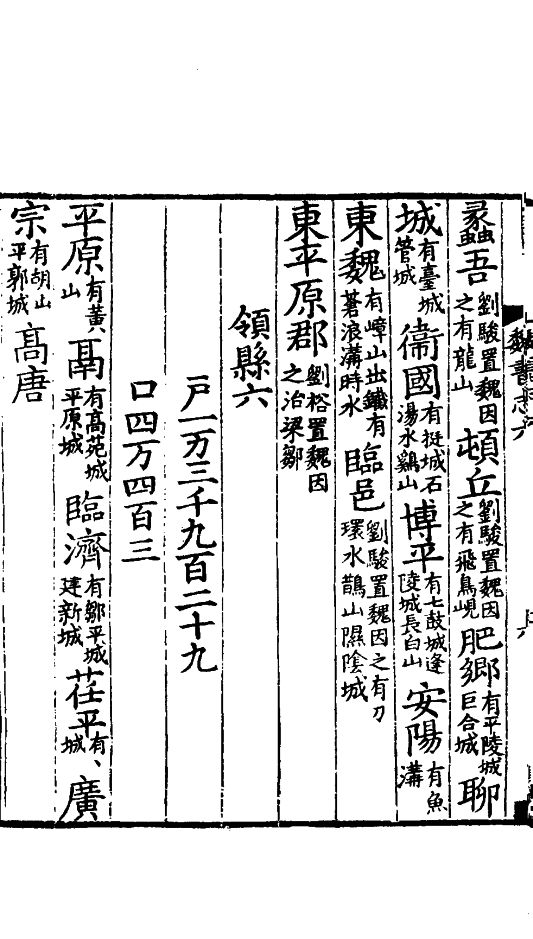 蟸吾劉駿置魏因之有龍山頓丘劉駿置魏因之有飛鳥峴肥鄉有平陵城巨合城聊
城有臺城管城衞國有挺城石湯水鷄山博平有七鼓城逢陵城長白山安陽有魚溝
東魏有嶂山出鐵有蒼浪溝時水臨邑劉駿置魏因之有刀環水鵲山隰陰城
東平原郡劉裕置魏因之治梁鄒
領縣六
戸一万三千九百二十九
口四万四百三
平原有黃山鬲有高苑城平原城臨濟有鄒平城建新城茌平有城廣
宗有胡山平郭城高唐
魏書志六